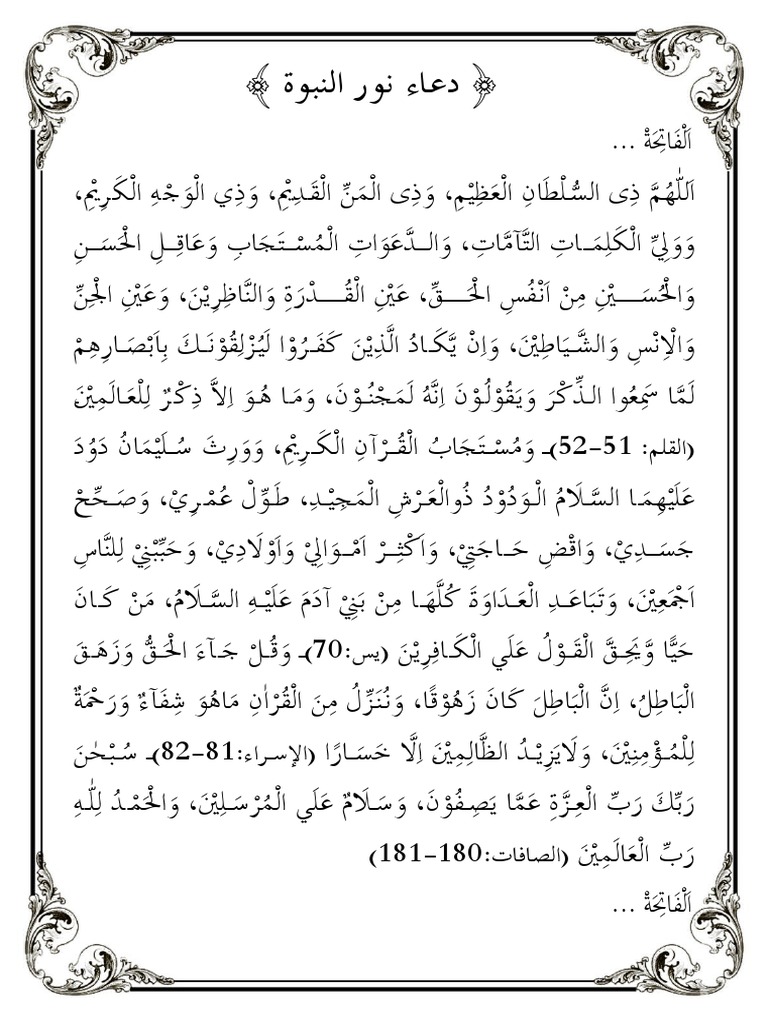 ﴿ دعاء نور النبوة ﴾
اَلْفَاتِحَةْ ...
اَللّٰهُمَّ ذِى السُّلْطَانِ الْعَظِيْمِ، وَذِى الْمَنِّ الْقَدِيْمِ، وَذِي الْوَجْهِ الْكَرِيْمِ،
وَوَلِيِّ الْكَلِمَاتِ التَّآمَّاتِ، وَالدَّعَوَاتِ الْمُسْتَجَابِ وَعَاقِلِ الْحَسَنِ
وَالْحُسَيْنِ مِنْ اَنْفُسِ الْحَقِّ، عَيْنِ الْقُدْرَةِ وَالنَّاظِرِيْنَ، وَعَيْنِ الْجِنِّ
وَالْاِنْسِ وَالشَّيَاطِيْنَ، وَاِنْ يَّكَادُ الَّذِيْنَ كَفَرُوْا لَيُزْلِقُوْنَكَ بِاَبْصَارِهِمْ
لَمَّا سَمِعُوا الذِّكْرَ وَيَقُوْلُوْنَ اِنَّهُ لَمَجْنُوْنَ، وَمَا هُوَ اِلاَّ ذِكْرٌ لِلْعَالَمِيْنَ
(القلم: 51-52)ـ وَمُسْتَجَابُ الْقُرْآنِ الْكَرِيْمِ، وَوَرِثَ سُلَيْمَانُ دَوُدَ
عَلَيْهِمَا السَّلَامُ الْوَدُوْدُ ذُوالْعَرْشِ الْمَجِيْدِ، طَوِّلْ عُمْرِيْ، وَصَحِّحْ
جَسَدِيْ، وَاقْضِ حَاجَتِيْ، وَاَكْثِرْ اَمْوَالِيْ وَاَوْلَادِيْ، وَحَبِّبْنِيْ لِلنَّاسِ
اَجْمَعِيْنَ، وَتَبَاعَدِ الْعَدَاوَةَ كُلَّهَا مِنْ بَنِيْ آدَمَ عَلَيْهِ السَّلَامُ، مَنْ كَانَ
حَيًّا وَّيَحِقَّ الْقَوْلُ عَلَي الْكَافِرِيْنَ (يس:70)ـ وَقُلْ جَآءَ الْحَقُّ وَزَهَقَ
الْبَاطِلُ، اِنَّ الْبَاطِلَ كَانَ زَهُوْقًا، وَنُنَزِّلُ مِنَ الْقُرْاٰنِ مَاهُوَ شِفَآءٌ وَرَحْمَةٌ
لِلْمُؤْمِنِيْنَ، وَلَايَزِيْدُ الظَّالِمِيْنَ اِلَّا خَسَارًا (الإسراء:81-82)ـ سُبْحٰنَ
رَبِّكَ رَبِّ الْعِزَّةِ عَمَّا يَصِفُوْنَ، وَسَلَامٌ عَلَي الْمُرْسَلِيْنَ، وَالْحَمْدُ لِلّٰهِ
رَبِّ الْعَالَمِيْنَ (الصافات:180-181)
اَلْفَاتِحَةْ ...